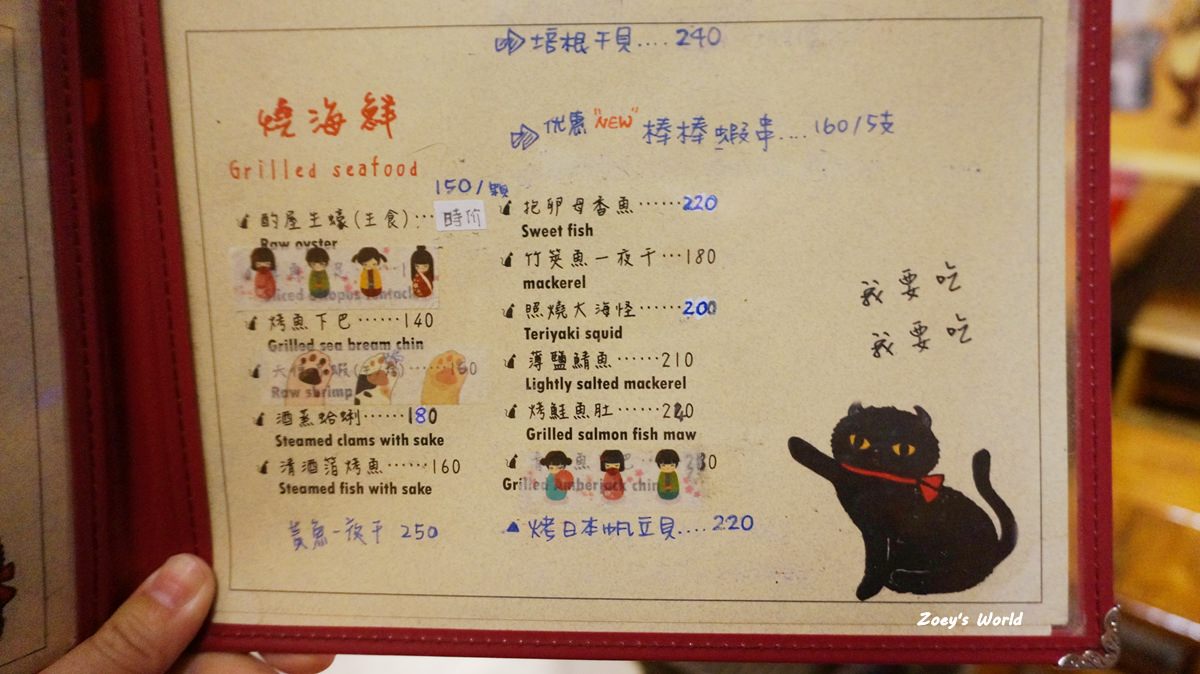 培根干貝....240
燒海鮮
Grilled seafood
优惠 "NEW" 棒棒蝦串....160/5支
150/顆
酌屋生蠔(生食)...時价
Raw oyster
烤魚下巴......140
Grilled sea bream chin
Raw shrimp
酒蒸蛤蜊......180
Steamed clams with sake
清酒箔烤魚......160
Steamed fish with sake
黃魚一夜干 250
抱卵母香魚......220
Sweet fish
竹筴魚一夜干...180
mackerel
照燒大海怪......200
Teriyaki squid
薄鹽鯖魚......210
Lightly salted mackerel
烤鮭魚肚......240
Grilled salmon fish maw
Grilled Amberjack chin
烤日本帆立貝....220
我要吃
我要吃
Zoey's World